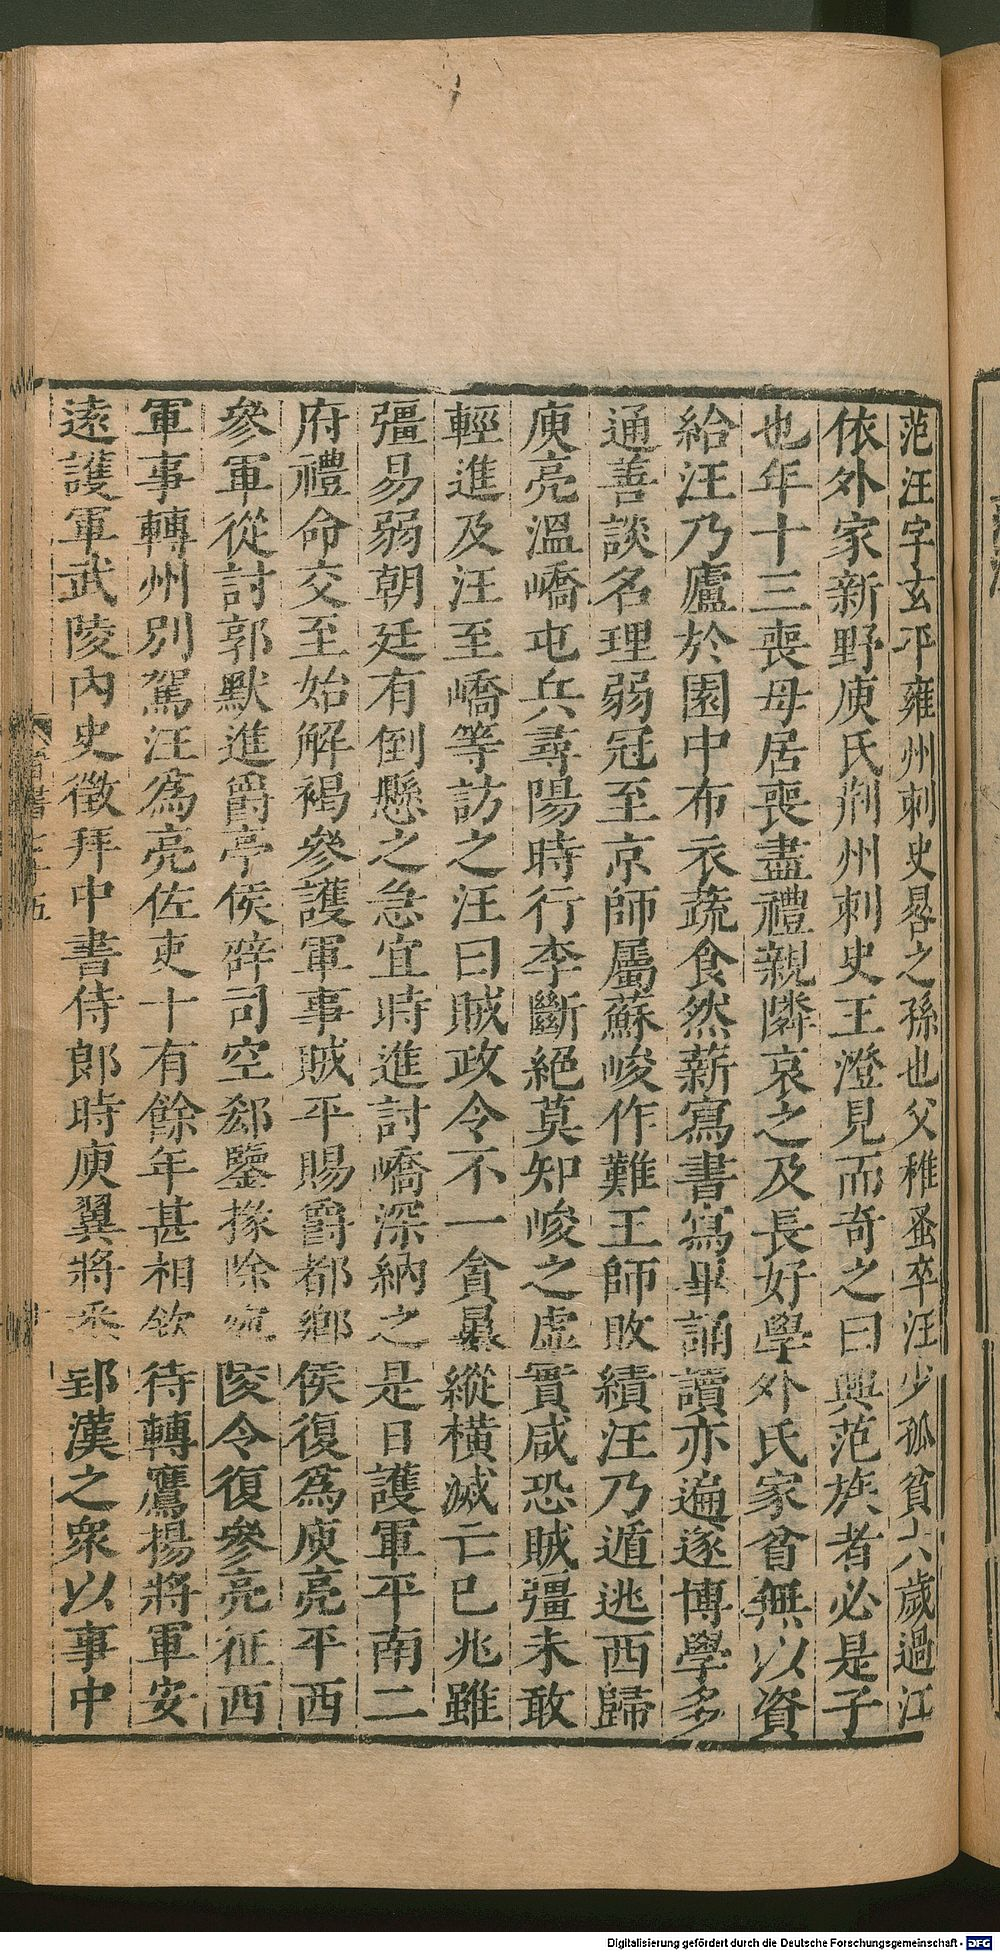 范汪字玄平雍州刺史晷之孫也父稚蚤卒汪少孤貧六歲過江
依外家新野庾氏荆州刺史王澄見而奇之曰興范族者必是子
也年十三喪母居喪盡禮親隣哀之及長好學外氏家貧無以資
給汪乃廬於園中布衣蔬食然薪寫書寫畢誦讀亦遍遂博學多
通善談名理弱冠至京師屬蘇峻作難王師敗績汪乃遁逃西歸
庾亮溫嶠屯兵尋陽時行李斷絕莫知峻之虛實咸恐賊彊未敢
輕進及汪至嶠等訪之汪曰賊政令不一貪暴縱橫滅亡已兆雖
彊易弱朝廷有倒懸之急宜時進討嶠深納之是日護軍平南二
府禮命交至始解褐參護軍事賊平賜爵都鄉侯復為庾亮平西
參軍從討郭默進爵亭侯辟司空郄鑒掾除宛陵令復參亮征西
軍事轉州別駕汪為亮佐吏十有餘年甚相欽待轉鷹揚將軍安
遠護軍武陵內史徵拜中書侍郎時庾翼將悉郢漢之眾以事中
Digitalisierung gefördert durch die Deutsche Forschungsgemeinschaft - DFG